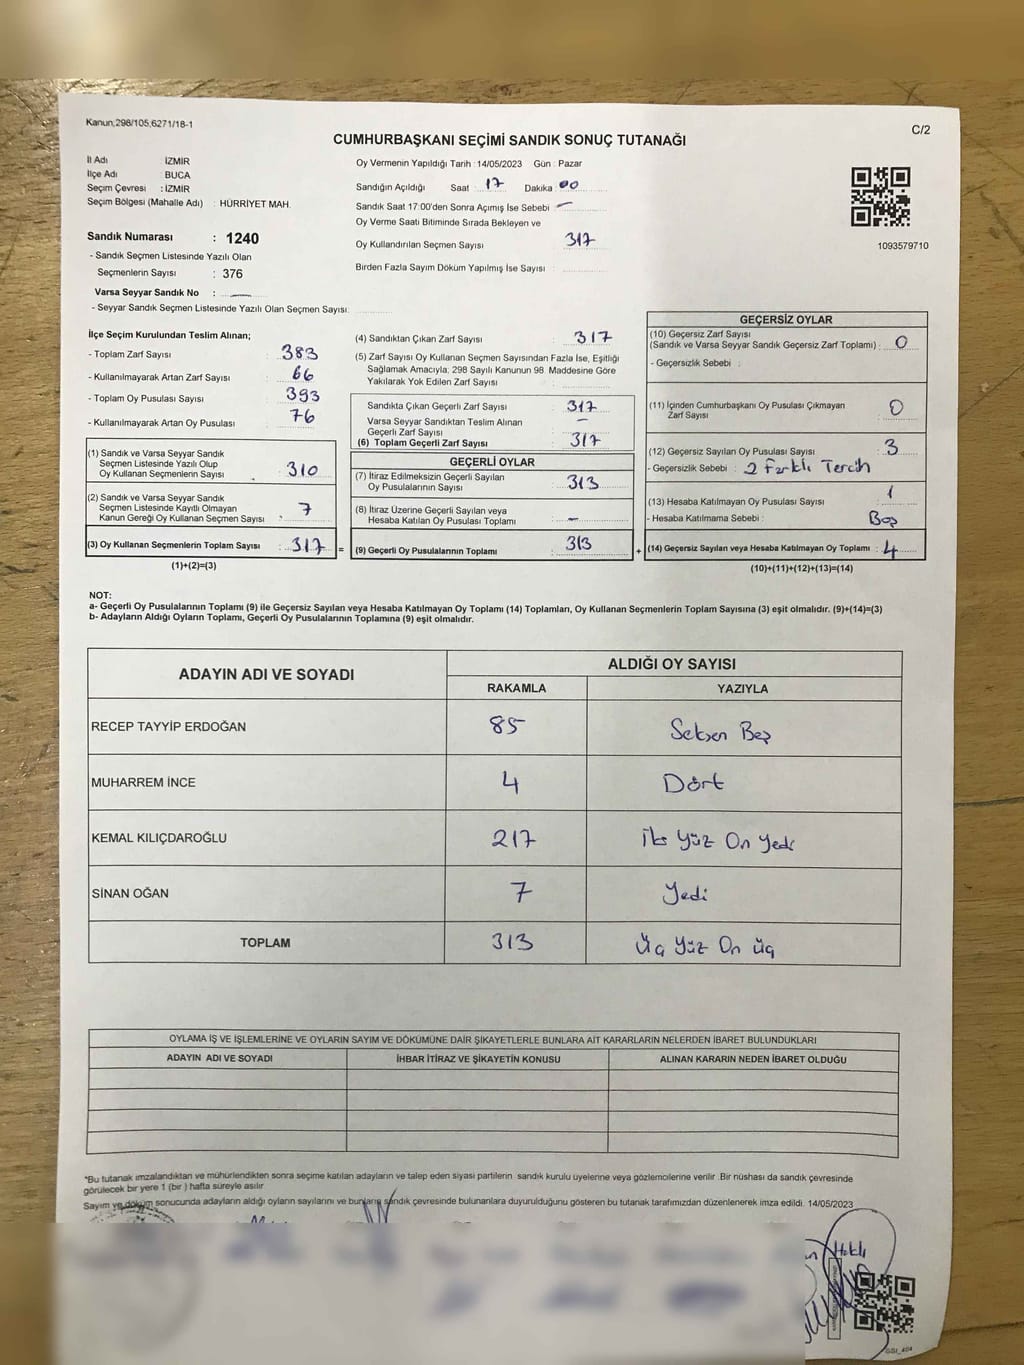 Kanun,298/105,6271/18-1
C/2
CUMHURBAŞKANI SEÇİMİ SANDIK SONUÇ TUTANAĞI
İl Adı İZMİR
İlçe Adı BUCA
Seçim Çevresi : İZMİR
Seçim Bölgesi (Mahalle Adı) : HÜRRİYET MAH.
Sandık Numarası : 1240
- Sandık Seçmen Listesinde Yazılı Olan
Seçmenlerin Sayısı : 376
Varsa Seyyar Sandık No : —
- Seyyar Sandık Seçmen Listesinde Yazılı Olan Seçmen Sayısı:
Oy Vermenin Yapıldığı Tarih : 14/05/2023 Gün : Pazar
Sandığın Açıldığı Saat : 17 Dakika : 00
Sandık Saat 17:00'den Sonra Açımış İse Sebebi : —
Oy Verme Saati Bitiminde Sırada Bekleyen ve
Oy Kullandırılan Seçmen Sayısı : 317
Birden Fazla Sayım Döküm Yapılmış İse Sayısı :
1093579710
İlçe Seçim Kurulundan Teslim Alınan;
- Toplam Zarf Sayısı : 383
- Kullanılmayarak Artan Zarf Sayısı : 66
- Toplam Oy Pusulası Sayısı : 393
- Kullanılmayarak Artan Oy Pusulası : 76
(1) Sandık ve Varsa Seyyar Sandık
Seçmen Listesinde Yazılı Olup
Oy Kullanan Seçmenlerin Sayısı : 310
(2) Sandık ve Varsa Seyyar Sandık
Seçmen Listesinde Kayıtlı Olmayan
Kanun Gereği Oy Kullanan Seçmen Sayısı : 7
(3) Oy Kullanan Seçmenlerin Toplam Sayısı : 317 =
(1)+(2)=(3)
(4) Sandıktan Çıkan Zarf Sayısı : 317
(5) Zarf Sayısı Oy Kullanan Seçmen Sayısından Fazla İse, Eşitliği
Sağlamak Amacıyla; 298 Sayılı Kanunun 98. Maddesine Göre
Yakılarak Yok Edilen Zarf Sayısı :
Sandıkta Çıkan Geçerli Zarf Sayısı : 317
Varsa Seyyar Sandıktan Teslim Alınan
Geçerli Zarf Sayısı : —
(6) Toplam Geçerli Zarf Sayısı : 317
GEÇERLİ OYLAR
(7) İtiraz Edilmeksizin Geçerli Sayılan
Oy Pusulalarının Sayısı : 313
(8) İtiraz Üzerine Geçerli Sayılan veya
Hesaba Katılan Oy Pusulası Toplamı : —
(9) Geçerli Oy Pusulalarının Toplamı : 313 +
GEÇERSİZ OYLAR
(10) Geçersiz Zarf Sayısı
(Sandık ve Varsa Seyyar Sandık Geçersiz Zarf Toplamı) : 0
- Geçersizlik Sebebi :
(11) İçinden Cumhurbaşkanı Oy Pusulası Çıkmayan
Zarf Sayısı : 0
(12) Geçersiz Sayılan Oy Pusulası Sayısı : 3
- Geçersizlik Sebebi : 2 Farklı Tercih
(13) Hesaba Katılmayan Oy Pusulası Sayısı : 1
- Hesaba Katılmama Sebebi : Boş
(14) Geçersiz Sayılan veya Hesaba Katılmayan Oy Toplamı : 4
(10)+(11)+(12)+(13)=(14)
NOT:
a- Geçerli Oy Pusulalarının Toplamı (9) ile Geçersiz Sayılan veya Hesaba Katılmayan Oy Toplamı (14) Toplamları, Oy Kullanan Seçmenlerin Toplam Sayısına (3) eşit olmalıdır. (9)+(14)=(3)
b- Adayların Aldığı Oyların Toplamı, Geçerli Oy Pusulalarının Toplamına (9) eşit olmalıdır.
ADAYIN ADI VE SOYADI ALDIĞI OY SAYISI
RAKAMLA YAZIYLA
RECEP TAYYİP ERDOĞAN 85 Seksen Beş
MUHARREM İNCE 4 Dört
KEMAL KILIÇDAROĞLU 217 İki Yüz On Yedi
SİNAN OĞAN 7 Yedi
TOPLAM 313 Üç Yüz On Üç
OYLAMA İŞ VE İŞLEMLERİNE VE OYLARIN SAYIM VE DÖKÜMÜNE DAİR ŞİKAYETLERLE BUNLARA AİT KARARLARIN NELERDEN İBARET BULUNDUKLARI
ADAYIN ADI VE SOYADI İHBAR İTİRAZ VE ŞİKAYETİN KONUSU ALINAN KARARIN NEDEN İBARET OLDUĞU
*Bu tutanak imzalandıktan ve mühürlendikten sonra seçime katılan adayların ve talep eden siyasi partilerin sandık kurulu üyelerine veya gözlemcilerine verilir. Bir nüshası da sandık çevresinde
görülecek bir yere 1 (bir ) hafta süreyle asılır
Sayım ve döküm sonucunda adayların aldığı oyların sayılarını ve bunların sandık çevresinde bulunanlara duyurulduğunu gösteren bu tutanak tarafımızdan düzenlenerek imza edildi. 14/05/2023